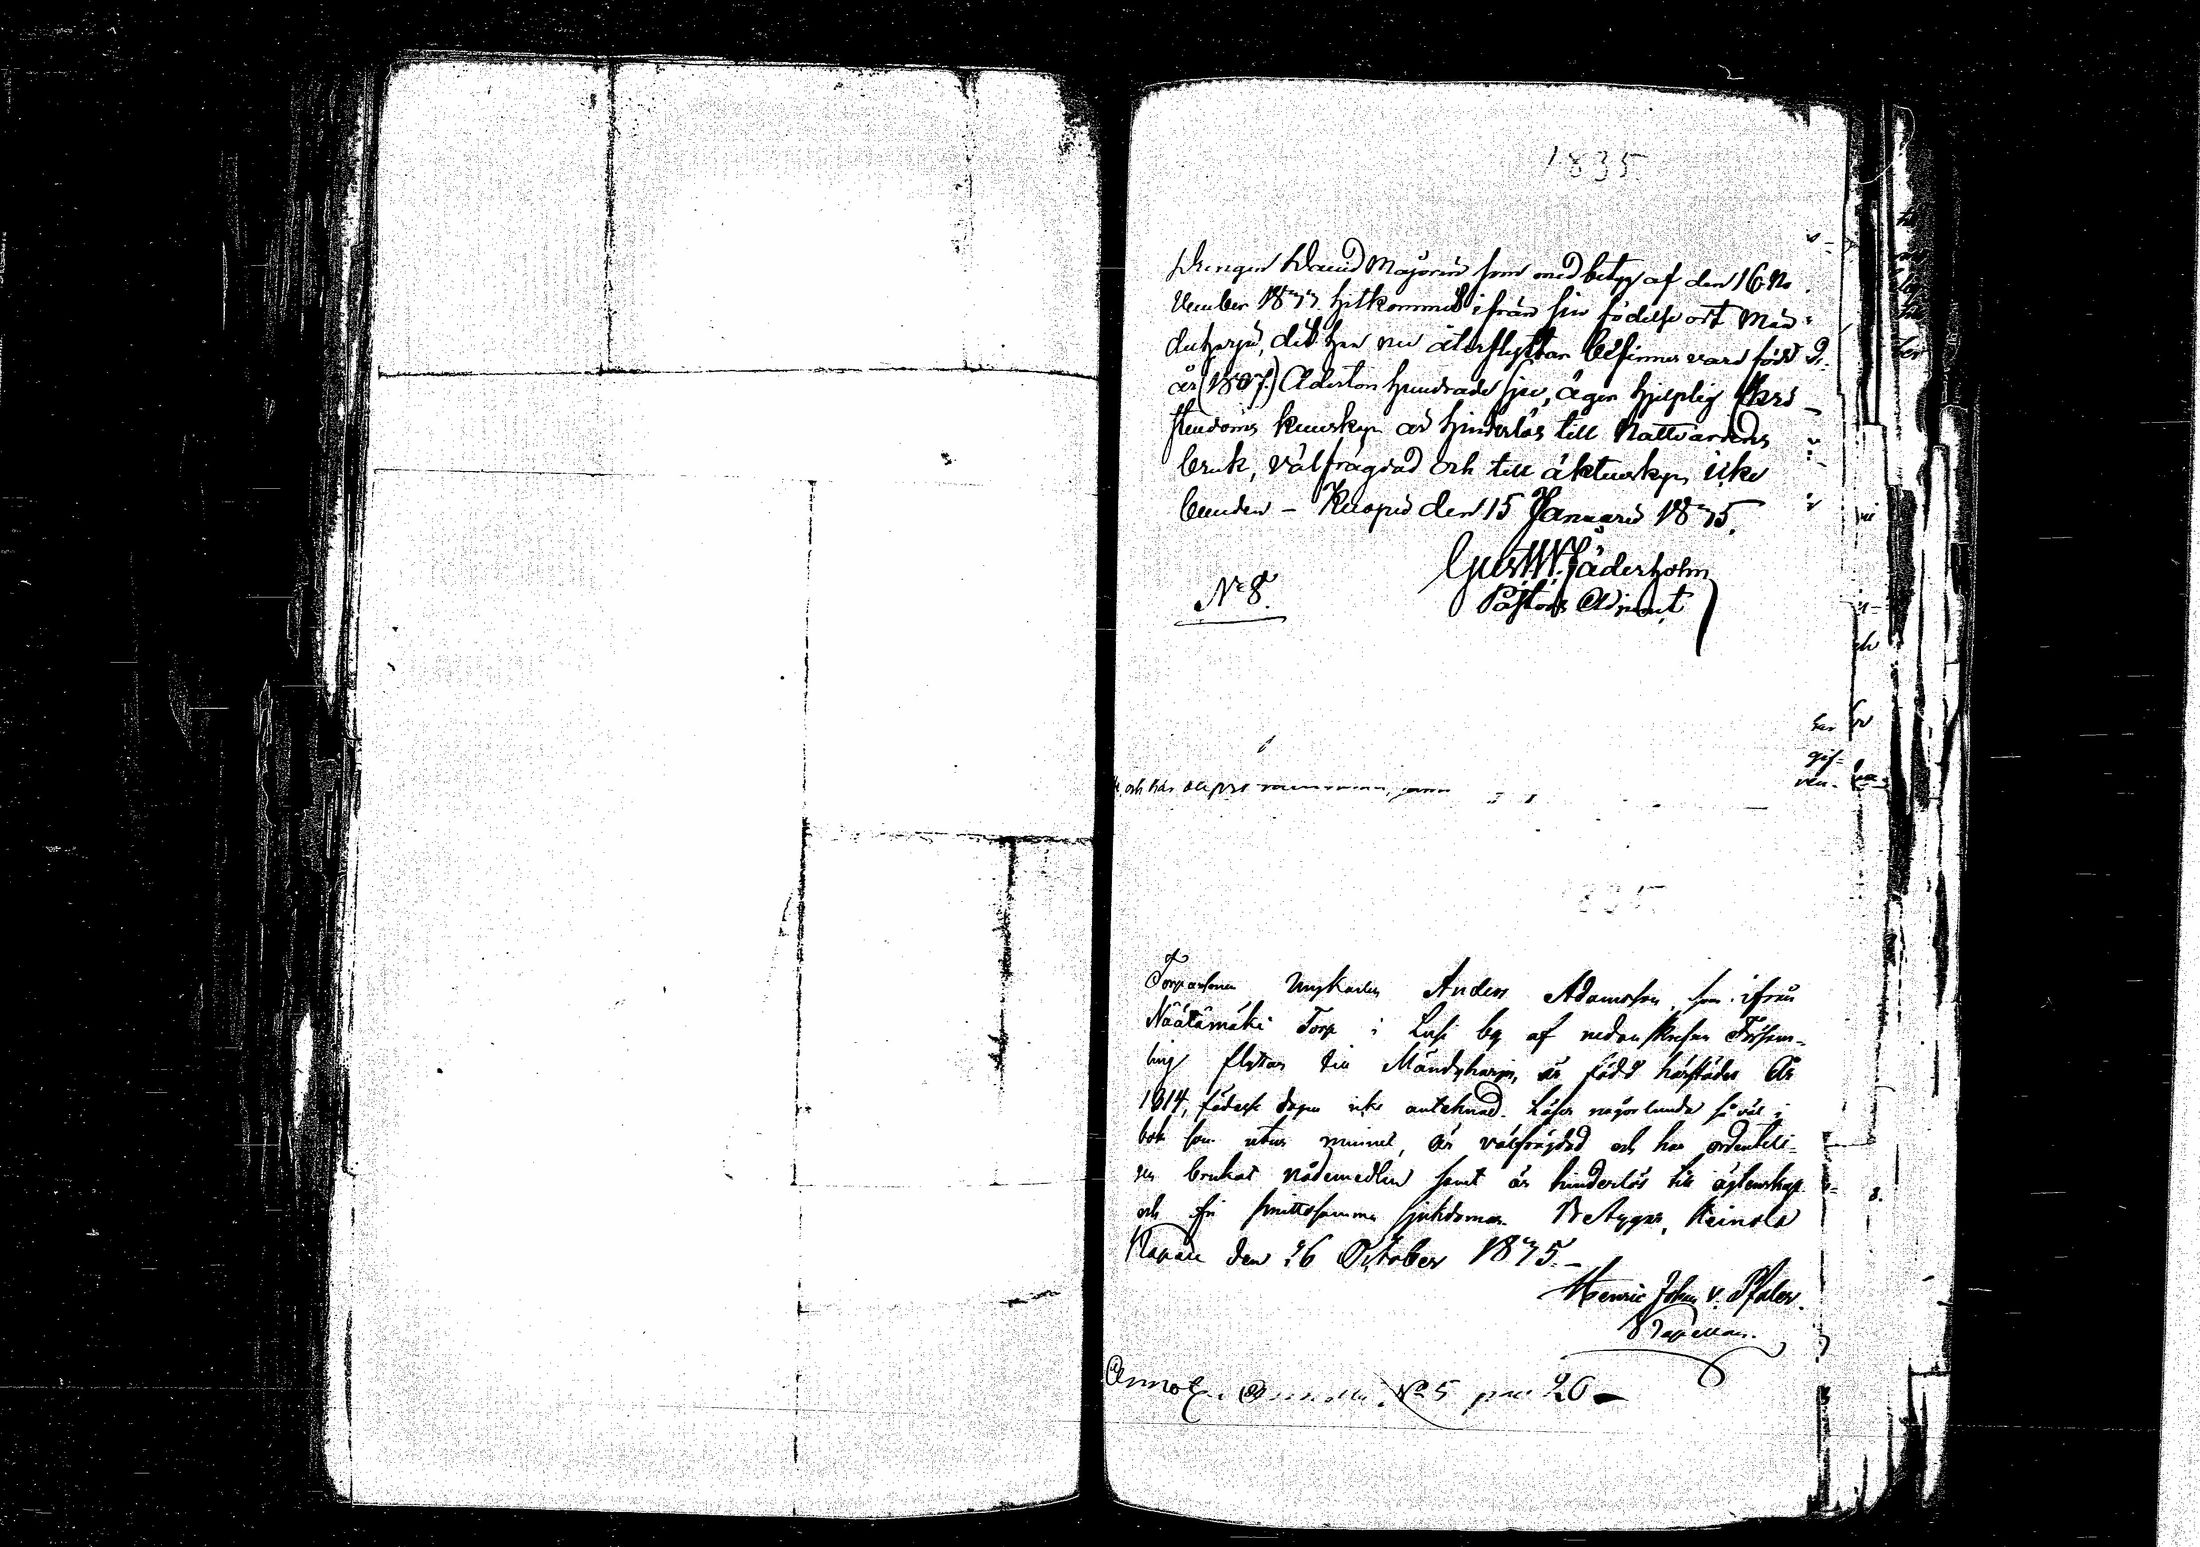 1835
Drengen David Majorin som med betyg af den 16 No
vember 1833 hitkommit ifrån sin födelse ort Män
duharju, dit han nu återflyttar befinnes vara född
år (1807.) Adertonhundrade sju, äger hjelplig Chri
stendoms kunskap är hinderlös till Nattvardens
bruk, välfrägdad och till äktenskap icke
bunden – Kuopio den 15 Januarii 1835.
Gust. W. Säderholm
Pastors Adjunct
No 8.
och har
1835
Torparsonen Ynglingen Anders Adamsson, som ifrån
Näätämäki Torp i Lusi by af nedanskrefne Försam-
ling flyttar till Mändyharju, är född härstädes År
1814, födelse dagen icke antecknad. Läser någorlunda så väl i
bok som utur minnet, är välfrägdad och har ordentli-
gen brukat nådemedlen samt är hinderlös till äktenskap
och fri smittosamma sjukdomar. Betygar, Heinola
den 26 October 1835.–
Henric Johan v. Pfaler.
Kapellan.
Annot. No 5 pag 20